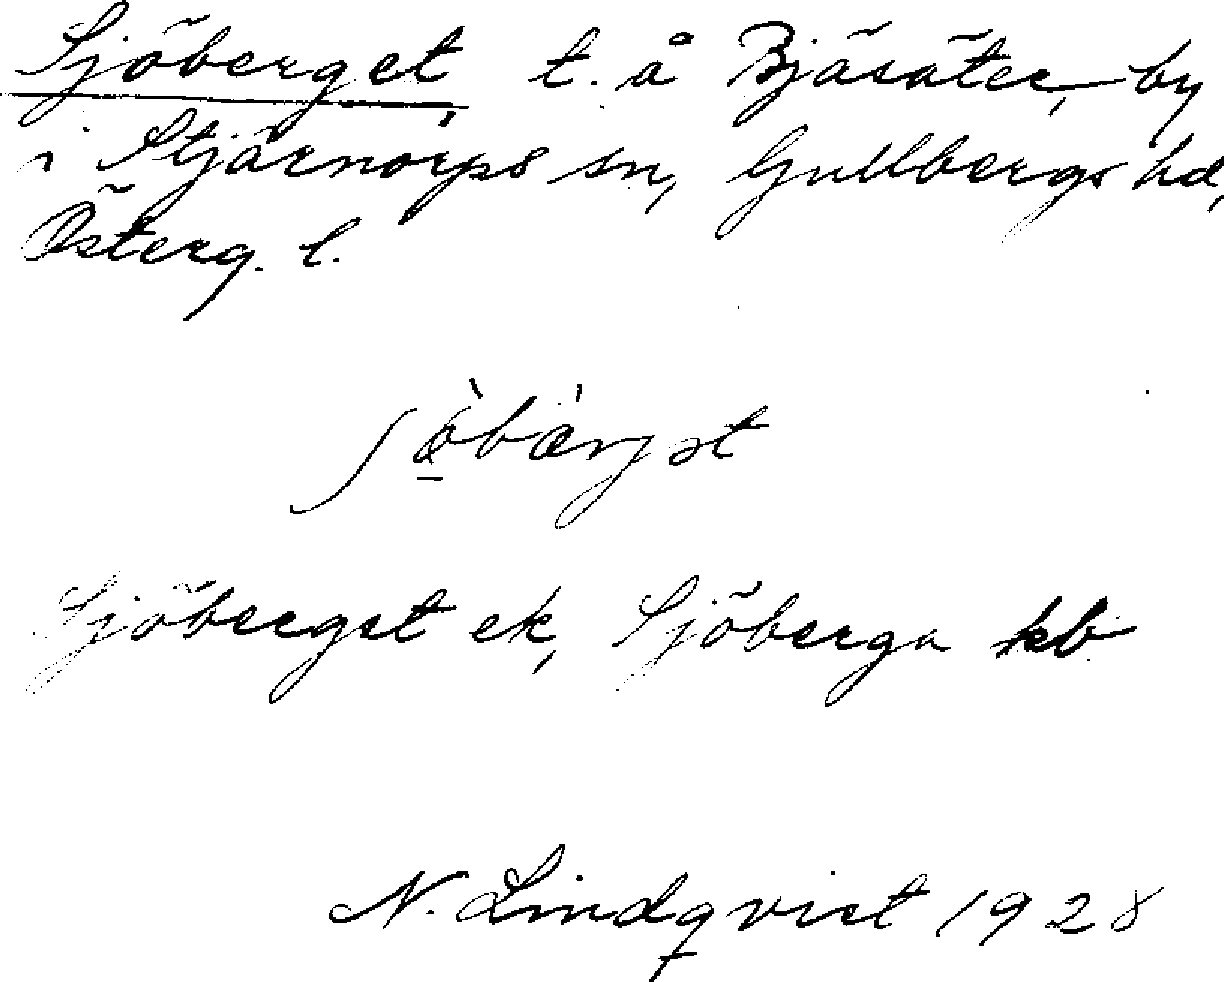 Sjöberget, t. å Bjäsäter, by
i Stjärnorps sn, Gullbergs hd,
Österg. l.
Sjöberget ek, Sjöberga kb
N. Lindqvist 1928